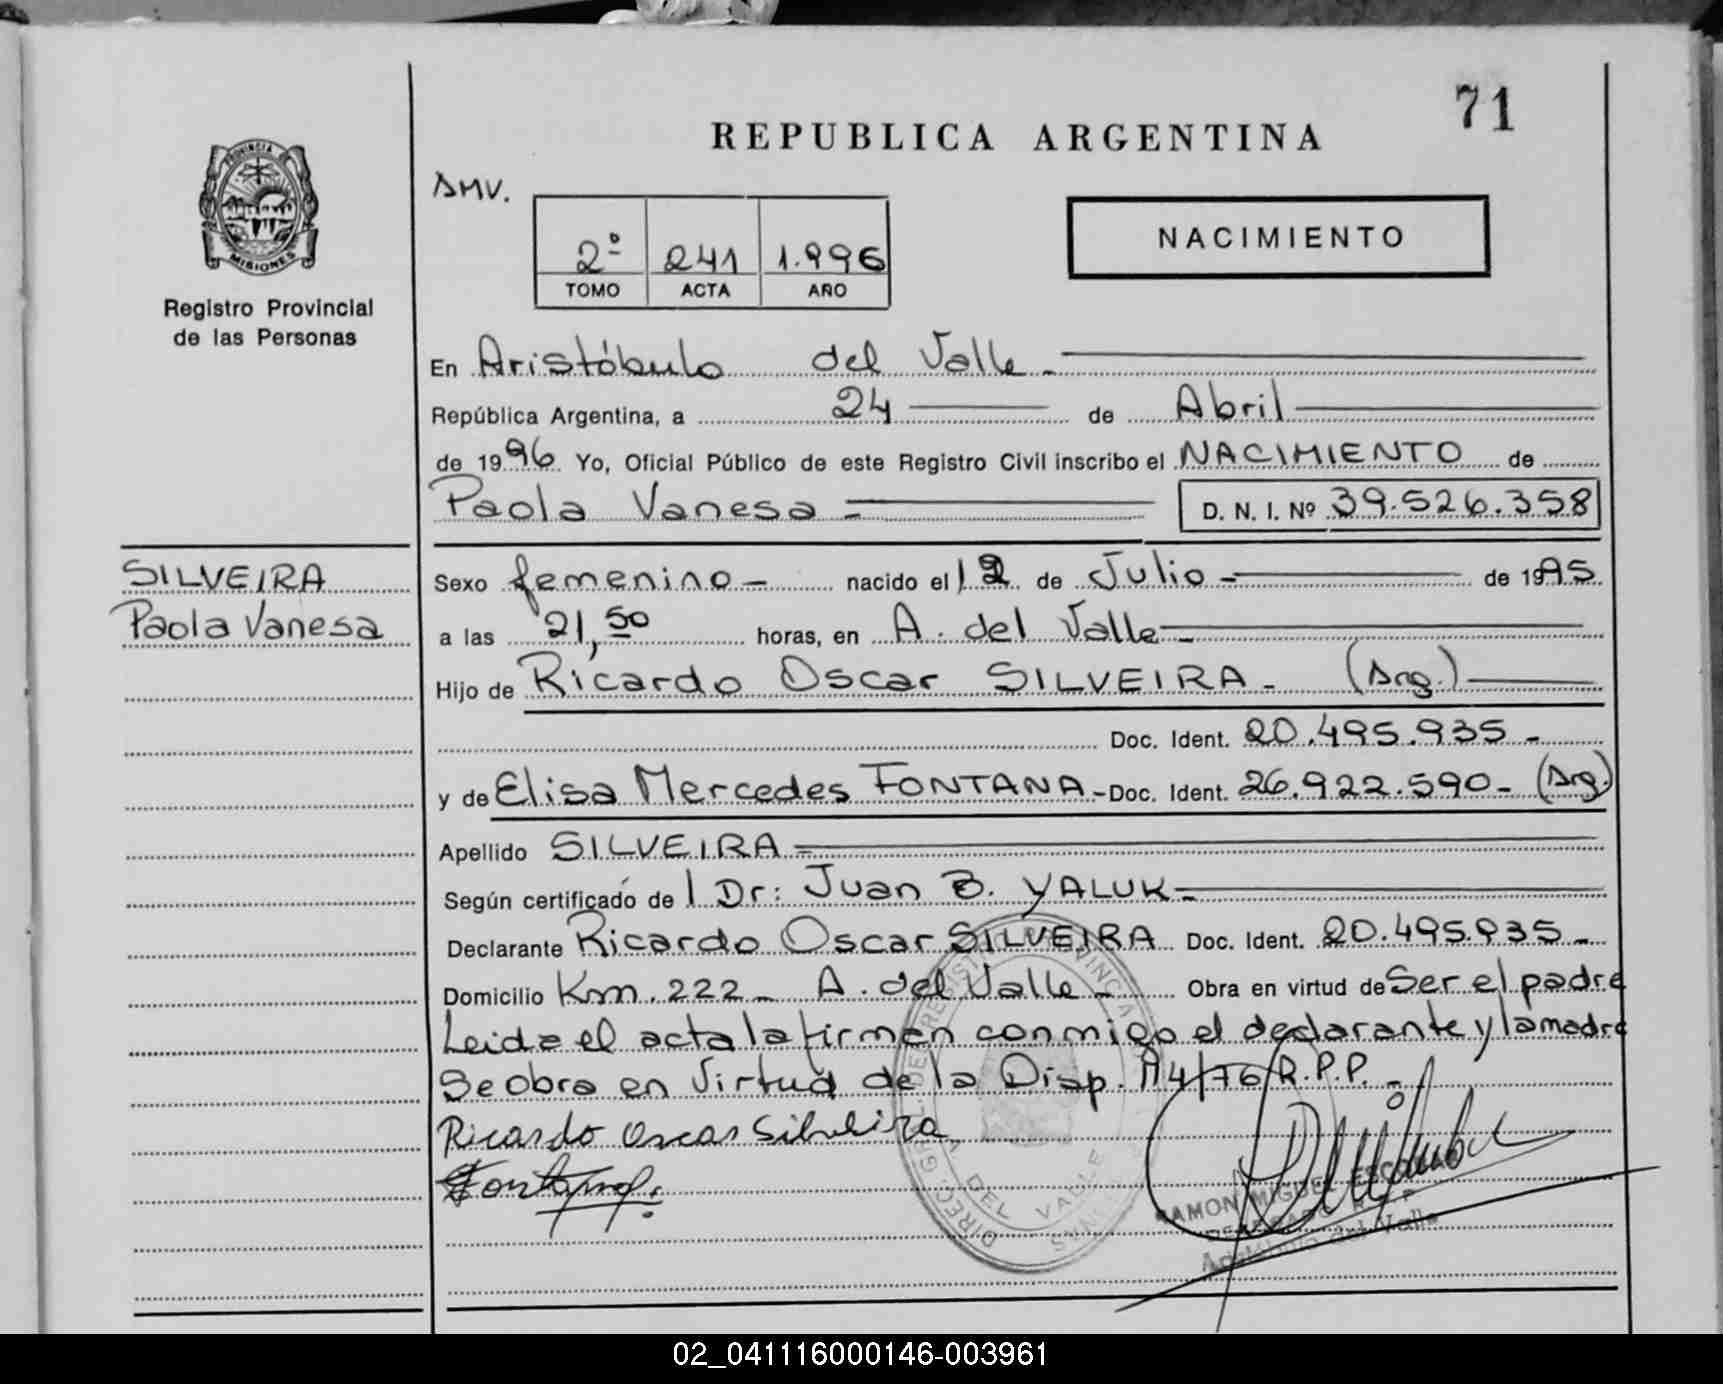 71
REPUBLICA ARGENTINA
PROVINCIA DE
MISIONES
Registro Provincial
de las Personas
AMV.
2º 241 1.996
TOMO ACTA AÑO
NACIMIENTO
En Aristóbulo del Valle -
República Argentina, a 24 de Abril
de 1996 Yo, Oficial Público de este Registro Civil inscribo el NACIMIENTO de
Paola Vanesa = D. N. I. Nº 39.526.358
SILVEIRA
Paola Vanesa
Sexo femenino - nacido el 12 de Julio - de 1995
a las 21,50 horas, en A. del Valle -
Hijo de Ricardo Oscar SILVEIRA - (Arg.)
Doc. Ident. 20.495.935 -
y de Elisa Mercedes FONTANA - Doc. Ident. 26.922.590 - (Arg.)
Apellido SILVEIRA =
Según certificado de l Dr: Juan B. YALUK -
Declarante Ricardo Oscar SILVEIRA Doc. Ident. 20.495.935 -
Domicilio Km. 222 - A. del Valle - Obra en virtud de Ser el padre
Leida el acta la firman conmigo el declarante y la madre
Se obra en Virtud de la Disp. 14/76 R.P.P. -
Ricardo Oscar Silveira
Fontana.
RAMON MIGUEL
Aristóbulo del Valle
02_041116000146-003961